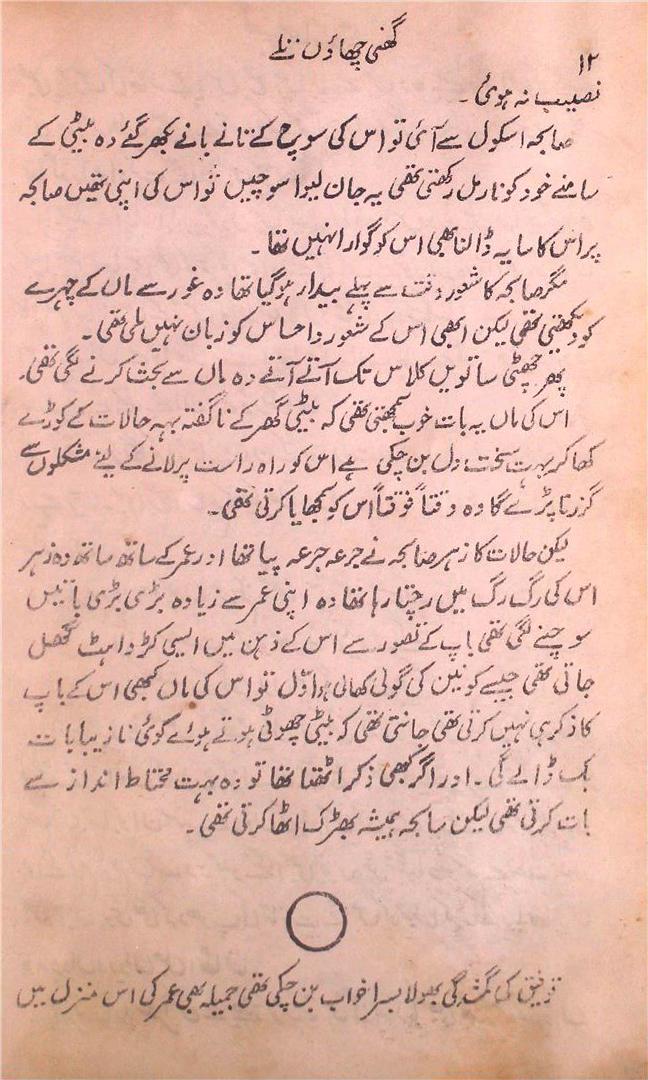 گھنی چھاؤں تلے
۱۲
نصیب نہ ہوئی۔
صابحہ اسکول سے آئی تو اس کی سوچ کے تانے بانے بکھر گئے وہ بیٹی کے
سامنے خود کو نارمل رکھتی تھی یہ جان لیوا سوچیں تو اس کی اپنی تھیں صابحہ
پر اس کا سایہ ڈالنا بھی اس کو گوارا نہیں تھا۔
مگر صابحہ کا شعور وقت سے پہلے بیدار ہو گیا تھا وہ غور سے ماں کے چہرے
کو دیکھتی تھی لیکن ابھی اس کے شعور و احساس کو زبان نہیں ملی تھی۔
پھر چھٹی ساتویں کلاس تک آتے آتے وہ ماں سے بحث کرنے لگی تھی۔
اس کی ماں یہ بات خوب سمجھتی تھی کہ بیٹی گھر کے ناگفتہ بہہ حالات کے کوڑے
کھا کر بہت سخت دل بن چکی ہے اس کو راہ راست پر لانے کے لیئے مشکلوں سے
گزرنا پڑے گا وہ وقتاً فوقتاً اس کو سمجھایا کرتی تھی۔
لیکن حالات کا زہر صابحہ نے جرعہ جرعہ پیا تھا اور عمر کے ساتھ ساتھ وہ زہر
اس کی رگ رگ میں رچتا رہا تھا وہ اپنی عمر سے زیادہ بڑی بڑی باتیں
سوچنے لگی تھی باپ کے تصور سے اس کے ذہن میں ایسی کڑواہٹ گھل
جاتی تھی جیسے کونین کی گولی کھالی ہو اوّل تو اس کی ماں کبھی اس کے باپ
کا ذکر ہی نہیں کرتی تھی جانتی تھی کہ بیٹی چھوٹی ہوتے ہوئے کوئی نازیبا بات
بک ڈالے گی۔ اور اگر کبھی ذکر اٹھتا تھا تو وہ بہت محتاط انداز سے
بات کرتی تھی لیکن صابحہ ہمیشہ بھڑک اٹھا کرتی تھی۔
توفیق کی گمشدگی بھولا بسرا خواب بن چکی تھی جمیلہ بھی عمر کی اس منزل میں